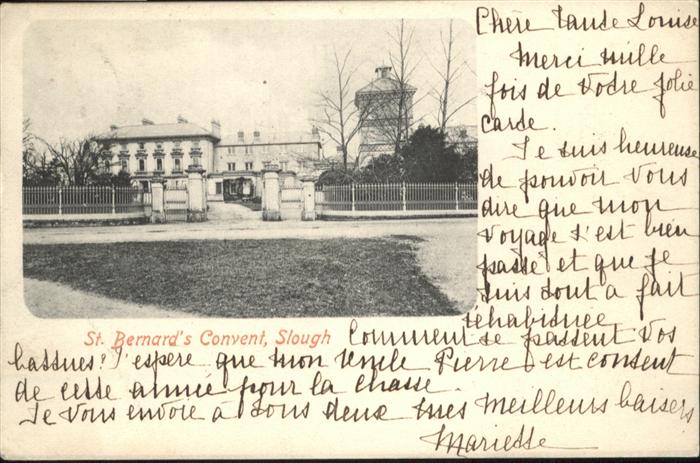 Chère Tante Louise
Merci mille
fois de votre jolie
carte.
Je suis heureuse
de pouvoir vous
dire que mon
voyage s'est bien
passé et que je
suis tout à fait
réhabituée
St. Bernard's Convent, Slough
Comment se passent vos
battues? J'espère que mon oncle Pierre est content
de cette année pour la chasse.
Je vous envoie à tous deux mes meilleurs baisers
Mariette